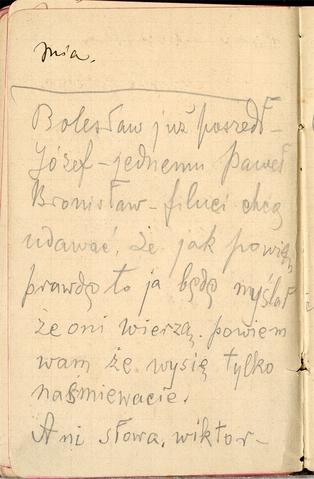 mia.
Bolesław już poszedł –
Józef – jednemu Paweł
Bronisław – filuci chcą
udawać, że jak powiem
prawdę to ja będę myślał
że oni wierzą. powiem
wam że wysię tylko
naśmiewacie.
Ani słowa, wiktor –